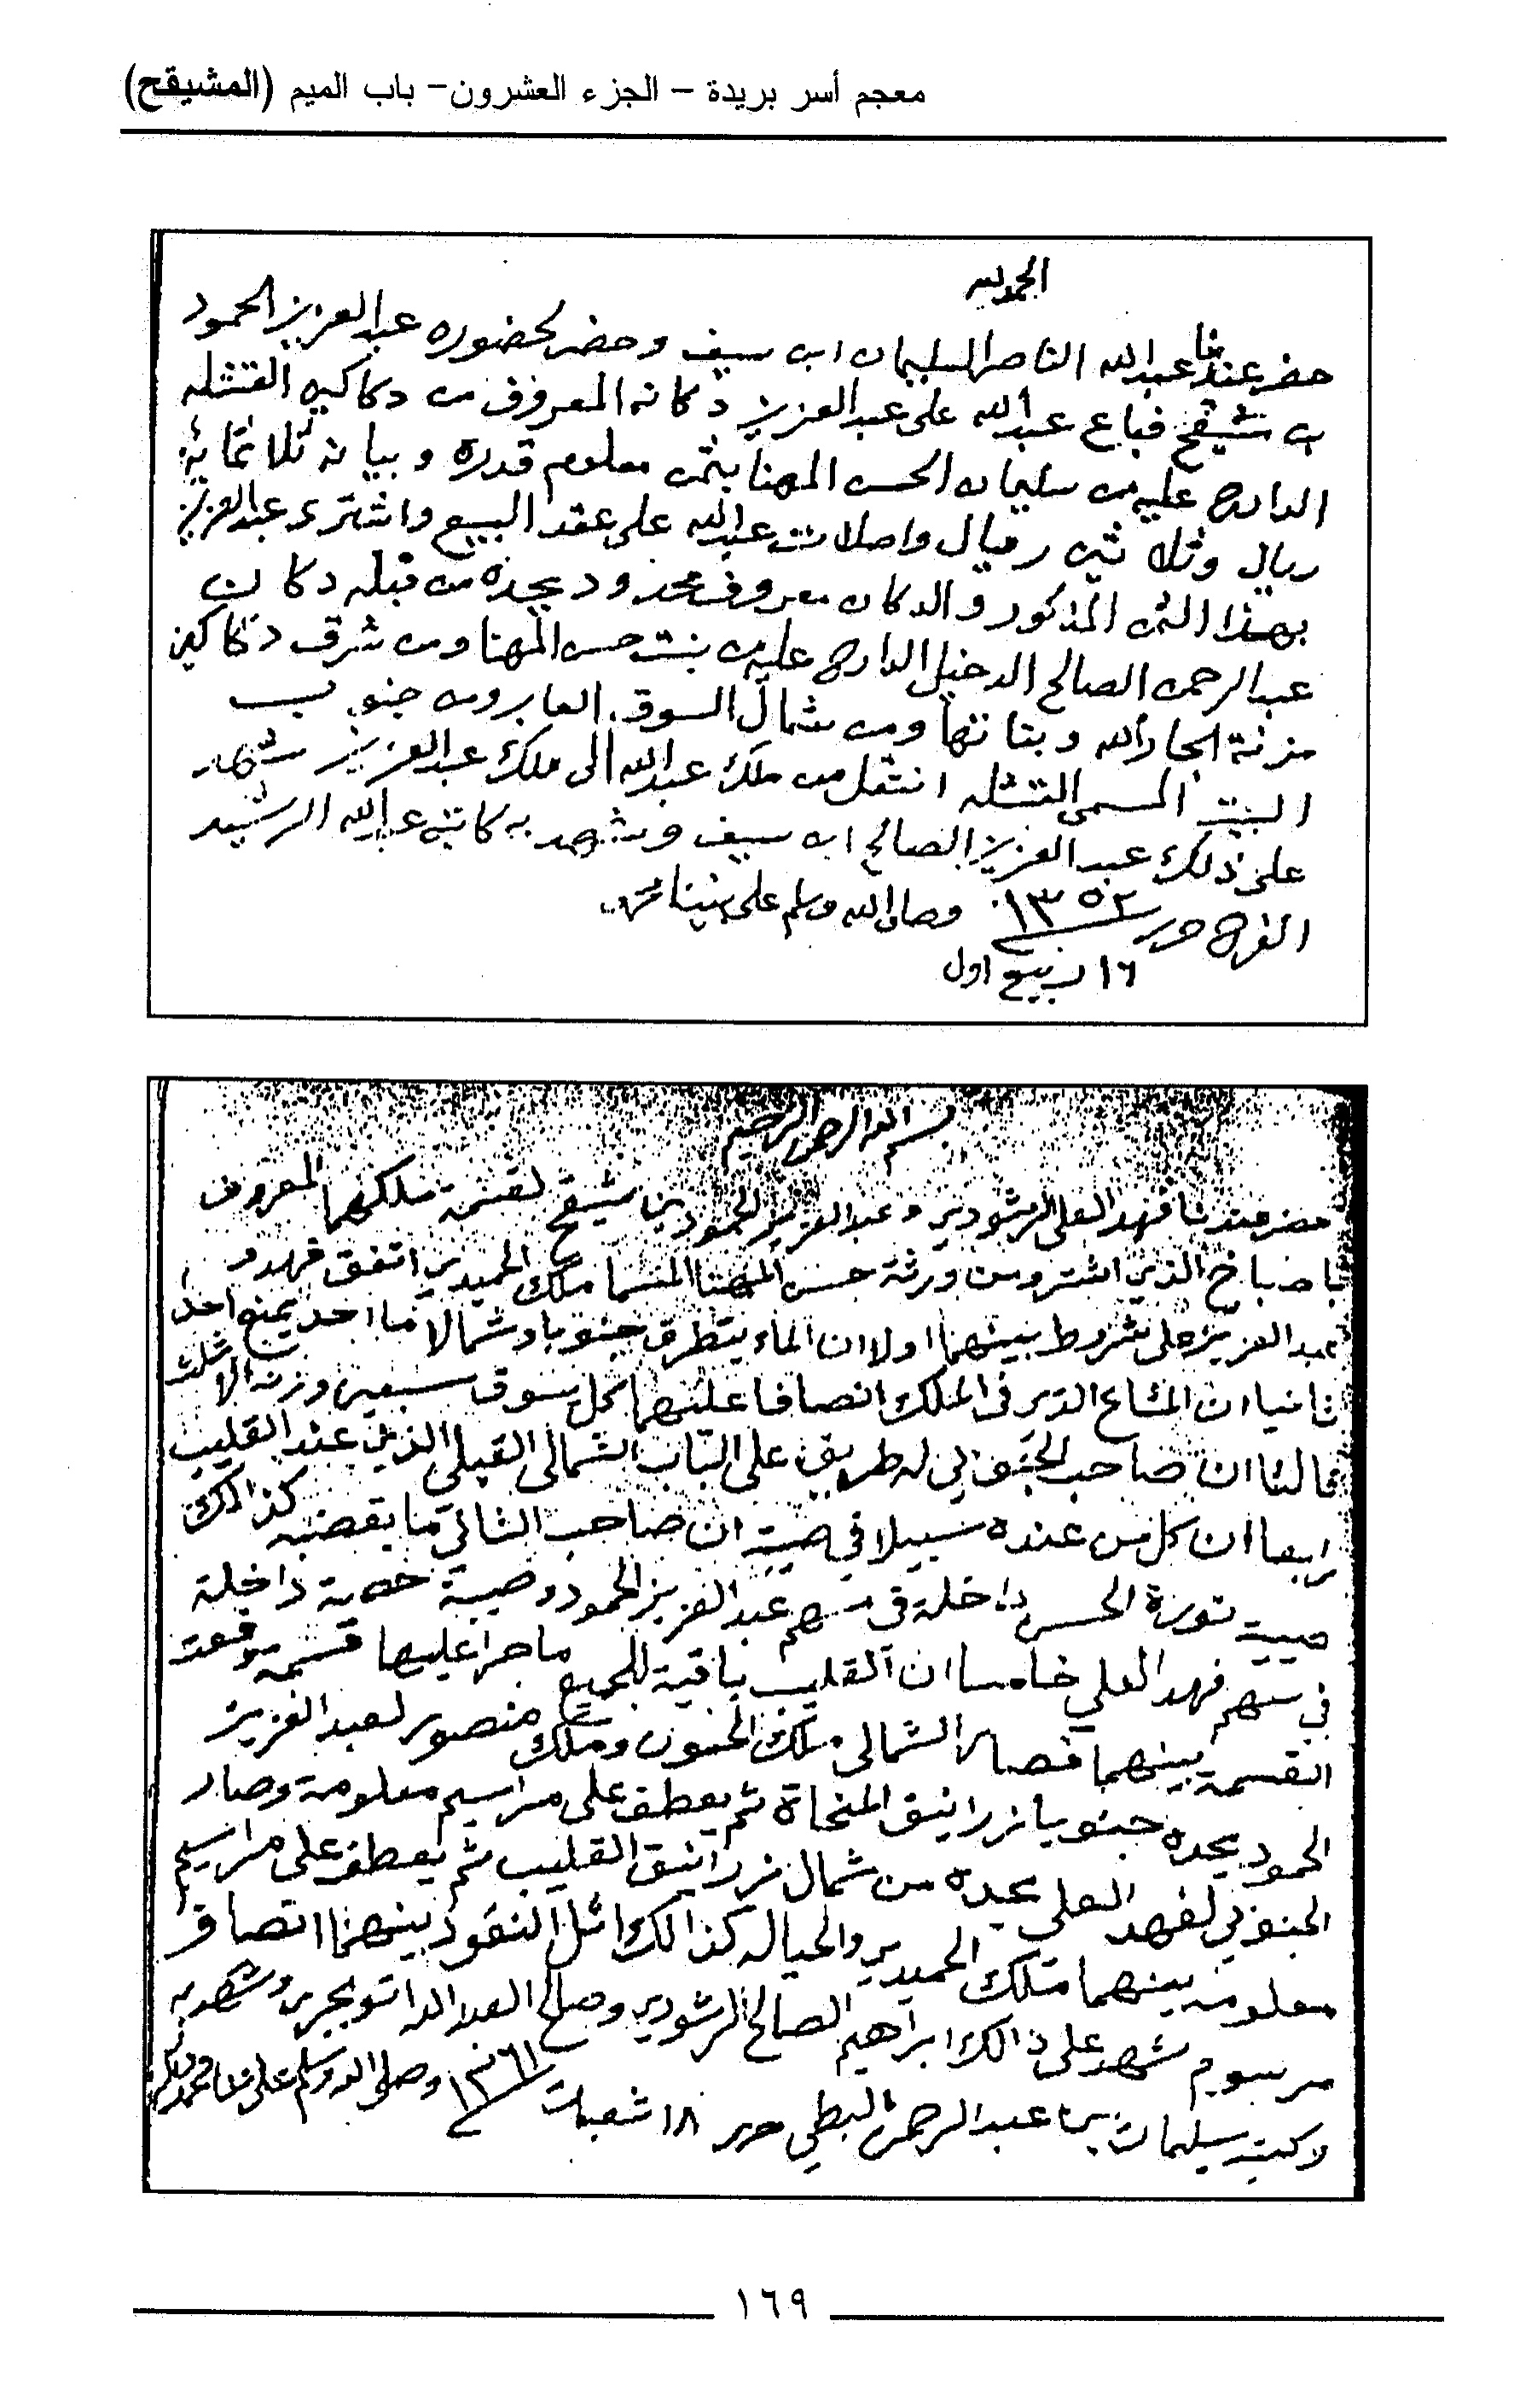 معجم أسر بريدة – الجزء العشرون– باب الميم (المشيقح)
الحمد لله
حضر عندنا عبدالله الناصر السليمان ابن سيف وحضر لحضوره عبدالعزيز الحمود
بن مشيقح فباع عبدالله على عبدالعزيز دكانه المعروف من دكاكين القشله
الدارج عليه من سليمان الحسن المهنا بثمن معلوم قدره وبيانه ثلاثماية
ريال وثلاثين ريال واصلات عبدالله على عقد البيع واشترى عبدالعزيز
بهذا الثمن المذكور والدكان معروف محدود يحده من قبله دكان
عبدالرحمن الصالح الدخيل الدارج عليه من بنت حسن المهنا ومن شرق دكاكين
مزنة الجارالله وبناتها ومن شمال السوق العابر ومن جنوب
البيت المسمى القشله انتقل من ملك عبدالله الى ملك عبدالعزيز شهد
على ذلك عبدالعزيز الصالح ابن سيف وشهد به كاتبه عبدالله الرشيد
الفرج حرر ١٣٥٢ وصلى الله وسلم على نبينا محمد
١٦ ربيع اول
بسم الله الرحمن الرحيم
حضر عندنا فهد العلي الرشودي وعبدالعزيز الحمود بن مشيقح لقسمة ملكهما المعروف
با صباخ الذي اشتروا من ورثة حسن المهنا المسما ملك الحميدي اتفق فهد و
عبدالعزيز على شروط بينهما اولا ان الماء يتطرق جنوبا وشمالا ما احد يمنع احد
ثانيا ان المشاع الذي في الملك انصافا عليهما كل يسوق سبعين وزنه الا ثلث
ثالثا ان صاحب الجنوبي له طريق على الباب الشمالي القبلي الذي عند القليب
رابعا ان كل من عنده سبيلا في صيبته ان صاحب الثاني ما يقضبه كذالك
صيبت نورة الحسن داخلة في سهم عبدالعزيز الحمود وصيبة حصة داخلة
في سهم فهد العلي خامسا ان القليب باقية للجميع ما جرا عليها قسمه وقعت
القسمة بينهما فصار الشمالي ملك الحنون وملك منصور لعبدالعزيز
الحمود يحده جنوبيا زرانيق المنحاة ثم يعطف على مراسيم معلومة وصار
الجنوبي لفهد العلي يحده من شمال زرانيق القليب ثم يعطف على مراسيم
معلومة بينهما ملك الحميدي والحياله كذالك اثل النفود بينهما انصاف
مرسوم شهد على ذالك ابراهيم الصالح الرشودي وصالح العبدالله التويجري وشهد به
وكتبه سليمان بن عبدالرحمن البطي حرر ١٨ شعبان ١٣٦١ وصلى الله وسلم على محمد
١٦٩